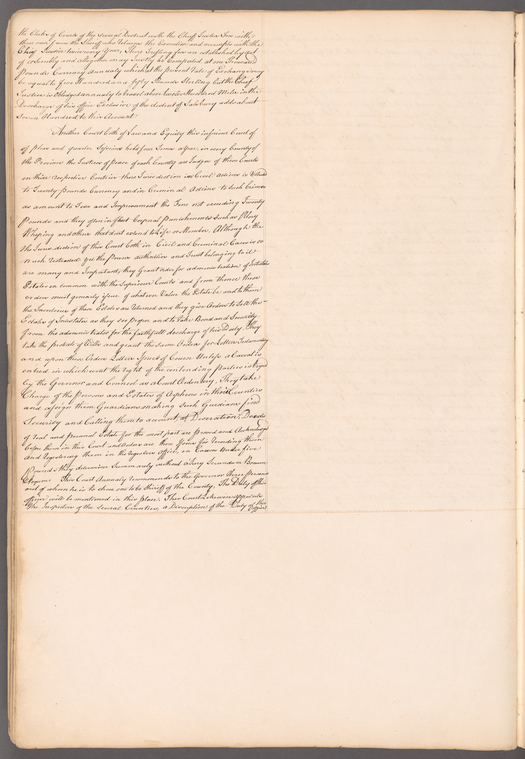 the Clerks of Courts of the several District with the Chief Justice Seven with
them own, and the Sheriff who to large the Counties and
Chief Justice twice every Year, These Trifling fees are established by act
of Assembly and altogether may Justly be Computed at one Thousand
Pounds Currency Annualy which at the present Rate of Exchange may
be equal to four Hundred and fifty Pounds Sterling but the Chief
Justice is obliged annualy to travel above twelve Hundred Miles in the
Discharge of his office Exclusive of the district of Salisbury adds about
Hundred to this Amount.
Another Court both of Law and Equity the inferior Court of
of pleas and quarter Sessions held four Times a year, in every County of
the Province the Justices of peace of each County are Judges of these Courts
in their respective Counties their Jurisdiction in Civil actions is limited
to Twenty pounds Currency and in Criminal Actions to such Crimes
as amount to Fine and Imprisonment the Fine not exceeding Twenty
Pounds and they often inflict Corporal Punishments Such as Pillory
Whiping and others that dont extend to Life or Member. Although the
the Jurisdiction of this Court both in Civil and Criminal Causes is
so much restrained yet the powers authorities and Trust belonging to it
are many and Important; they Grant orders for administration of Intestates
Estates in common with the Supreme Courts and from them these
orders most generaly Issue of whatever Value the Estate be and to them
the Inventories of these Estates are returned and they give Orders to Sell the
Estates of Intestates as they see proper and to take Bond and Security
from the administrator for the faithfull discharge of his Duty. They
take the probate of Wills and grant the same Orders for Letters Testamentary
and upon these Orders Letters Issued of Course Unless a Caveat is
entred in which event the right of the contending parties is tryed
by the Governor and Council as a Court Ordinary, They take
Charge of the Persons and Estates of Orphans in their Counties
and assign them Guardians making Such Guardians find
Security and Calling them to account at Discretion. Deeds
of real and personal Estate for the most part are proved and Acknowledged
before them in their Court and orders are then given for recording them
and registering them in the registers office, in Causes Under five
Pounds they determine Summarily without a Jury
This Court Annualy recommends to the Governor three persons
out of whom he is to chuse one to be Sheriff of the County. The Duty of this
officer will be mentioned in this place. These Courts likewise appoints
the Inspectors of the several Counties, a Description of the Duty of this officer